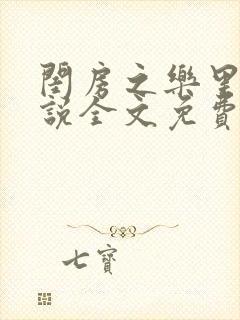 閨房之樂里
說全文免費
七寶